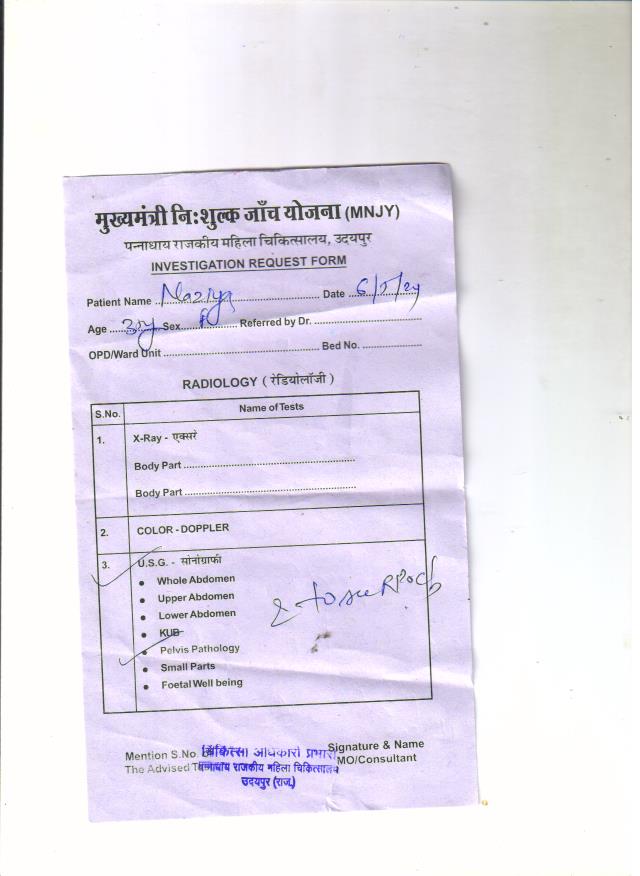 मुख्यमंत्री निःशुल्क जाँच योजना (MNJY)
पन्नाधाय राजकीय महिला चिकित्सालय, उदयपुर
INVESTIGATION REQUEST FORM
Patient Name Naziya Date 6/5/24
Age Sex f Referred by Dr.
OPD/Ward Unit Bed No.
RADIOLOGY ( रेडियोलॉजी )
S.No. Name of Tests
1. X-Ray - एक्सरे
Body Part
Body Part
2. COLOR - DOPPLER
3. U.S.G. - सोनोग्राफी
• Whole Abdomen
• Upper Abdomen
• Lower Abdomen
• KUB
• Pelvis Pathology
• Small Parts
• Foetal Well being
to see RPOCs
Mention S.No. चिकित्सा अधिकारी प्रभारी Signature & Name
The Advised पन्नाधाय राजकीय महिला चिकित्सालय MO/Consultant
उदयपुर (राज.)